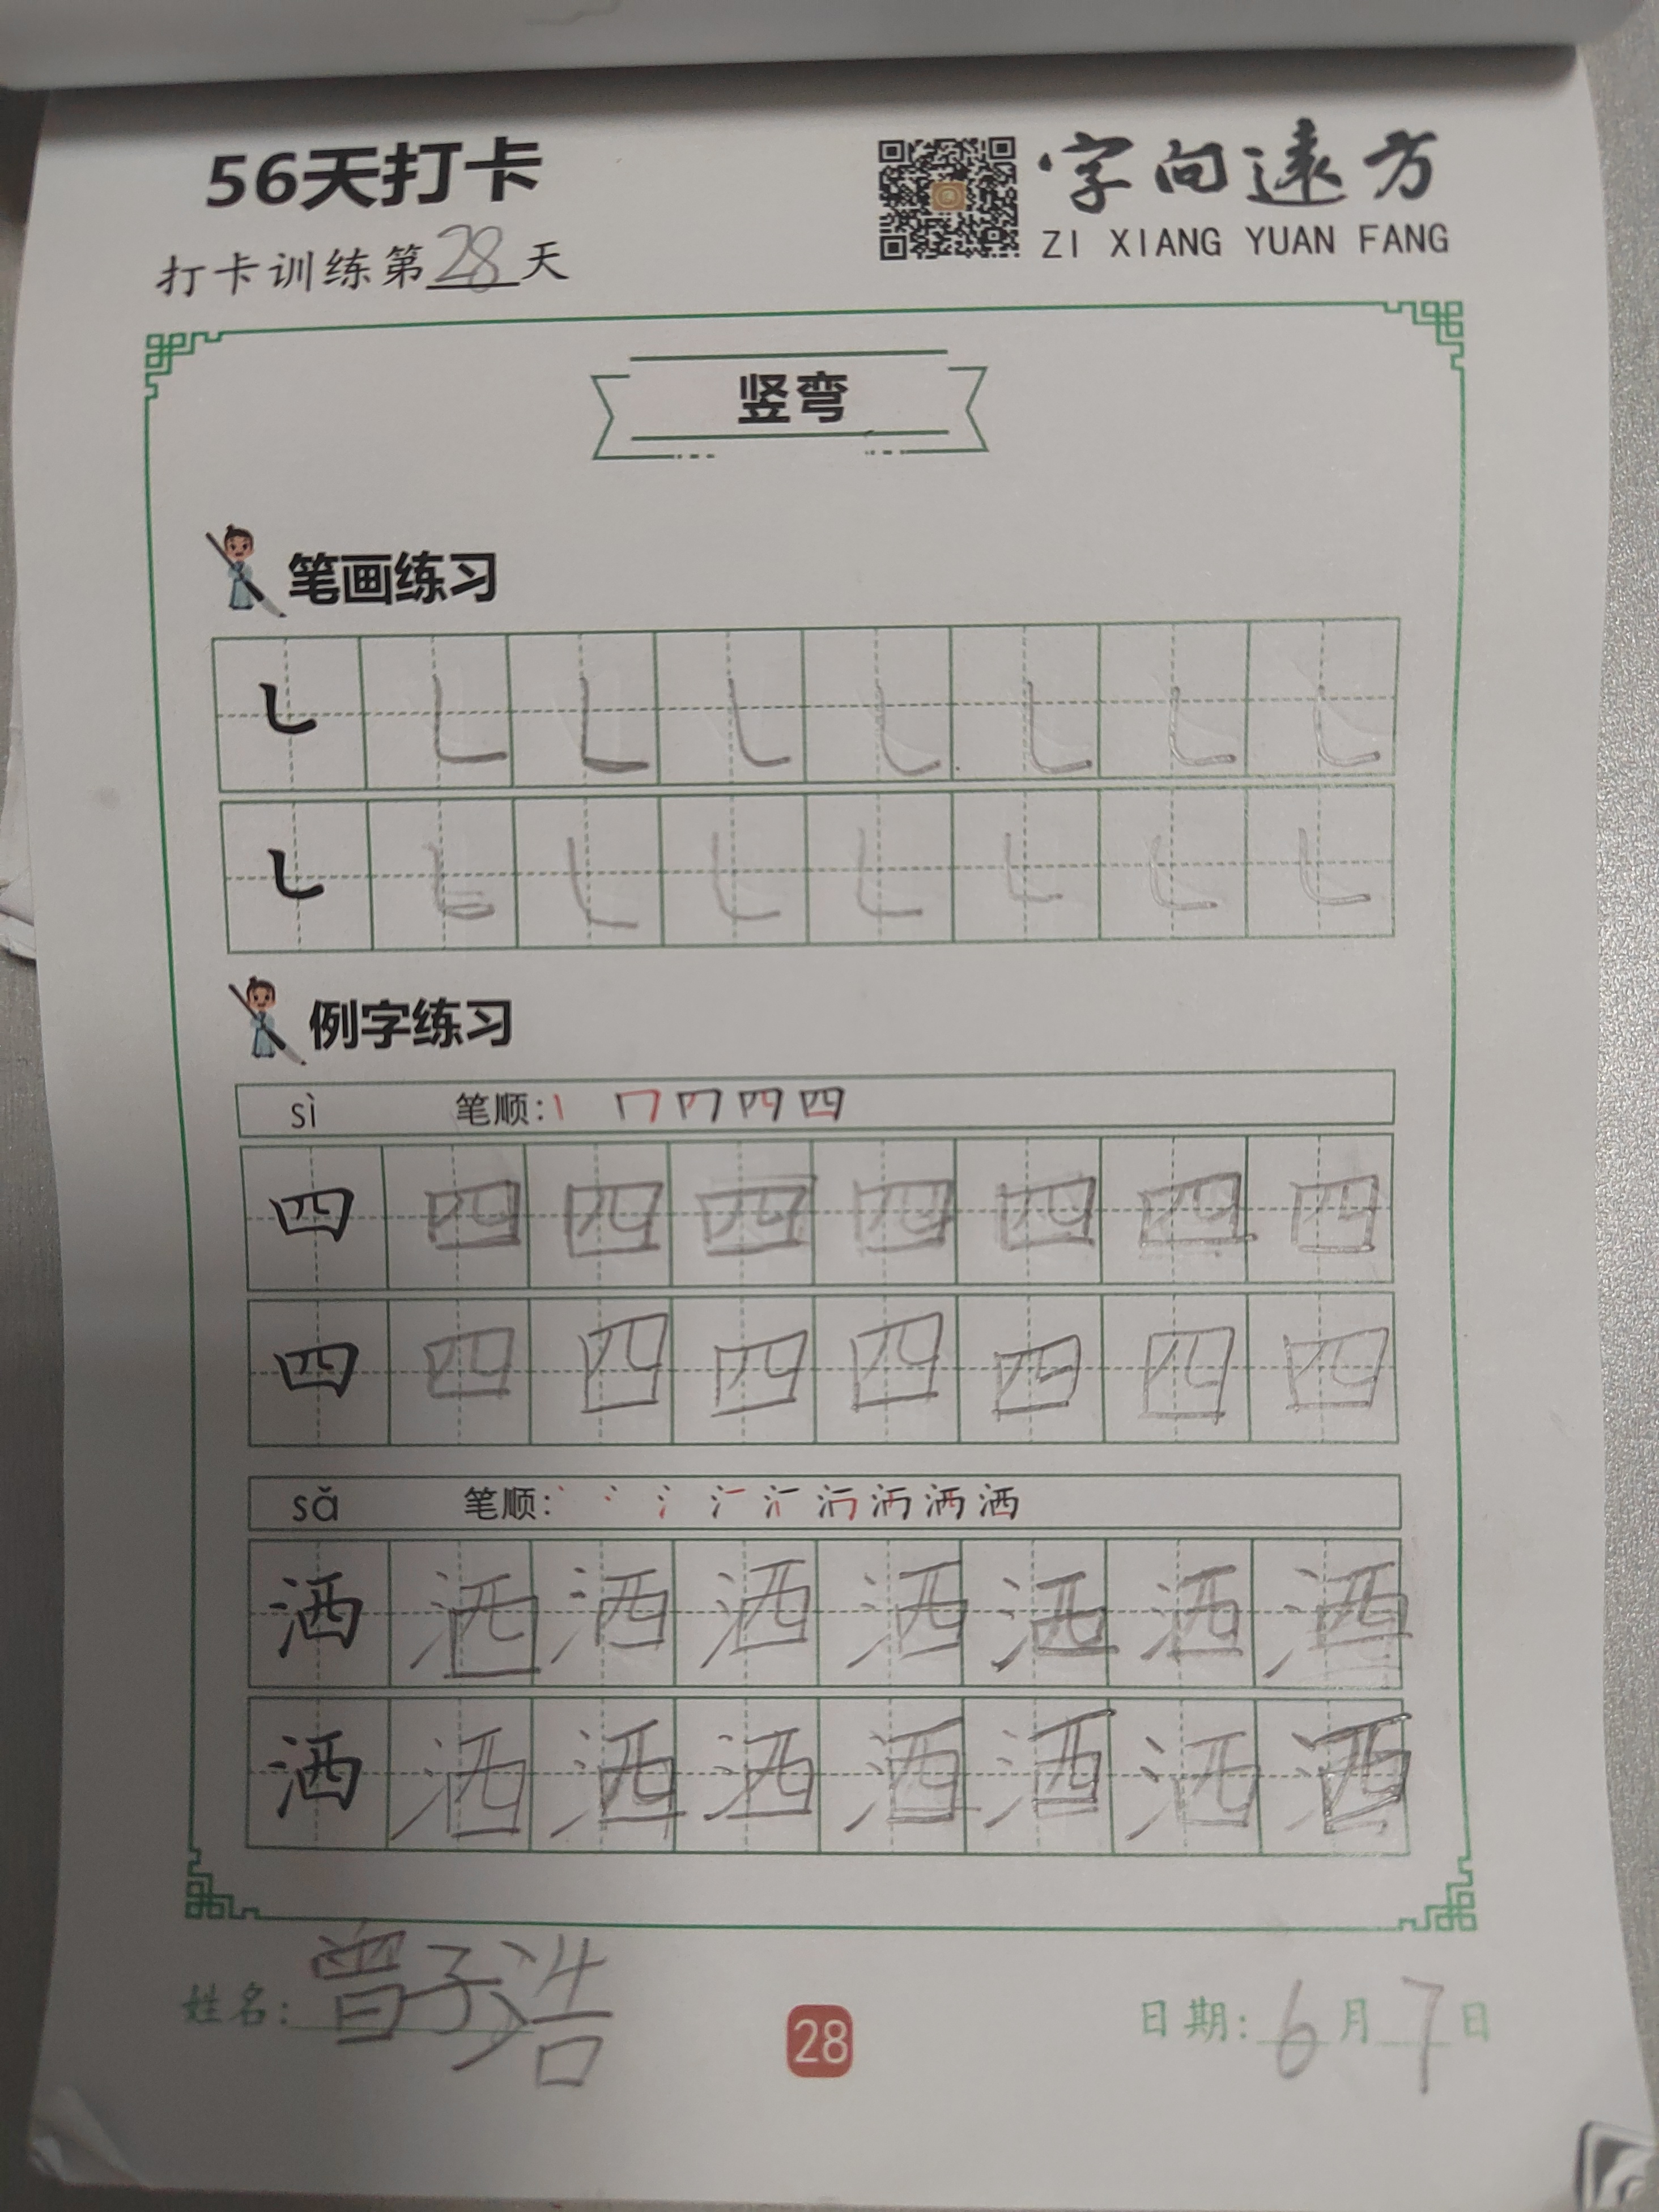 56天打卡
字向遠方
ZI XIANG YUAN FANG
打卡训练第28天
竖弯
笔画练习
㇄ ㇄ ㇄ ㇄ ㇄ ㇄ ㇄ ㇄
㇄ ㇄ ㇄ ㇄ ㇄ ㇄ ㇄ ㇄
例字练习
sì 笔顺:
四 四 四 四 四 四 四 四
四 四 四 四 四 四 四 四
sǎ 笔顺:
洒 洒 洒 洒 洒 洒 洒 洒
洒 洒 洒 洒 洒 洒 洒 洒
姓名: 曾子浩
28
日期: 6月7日